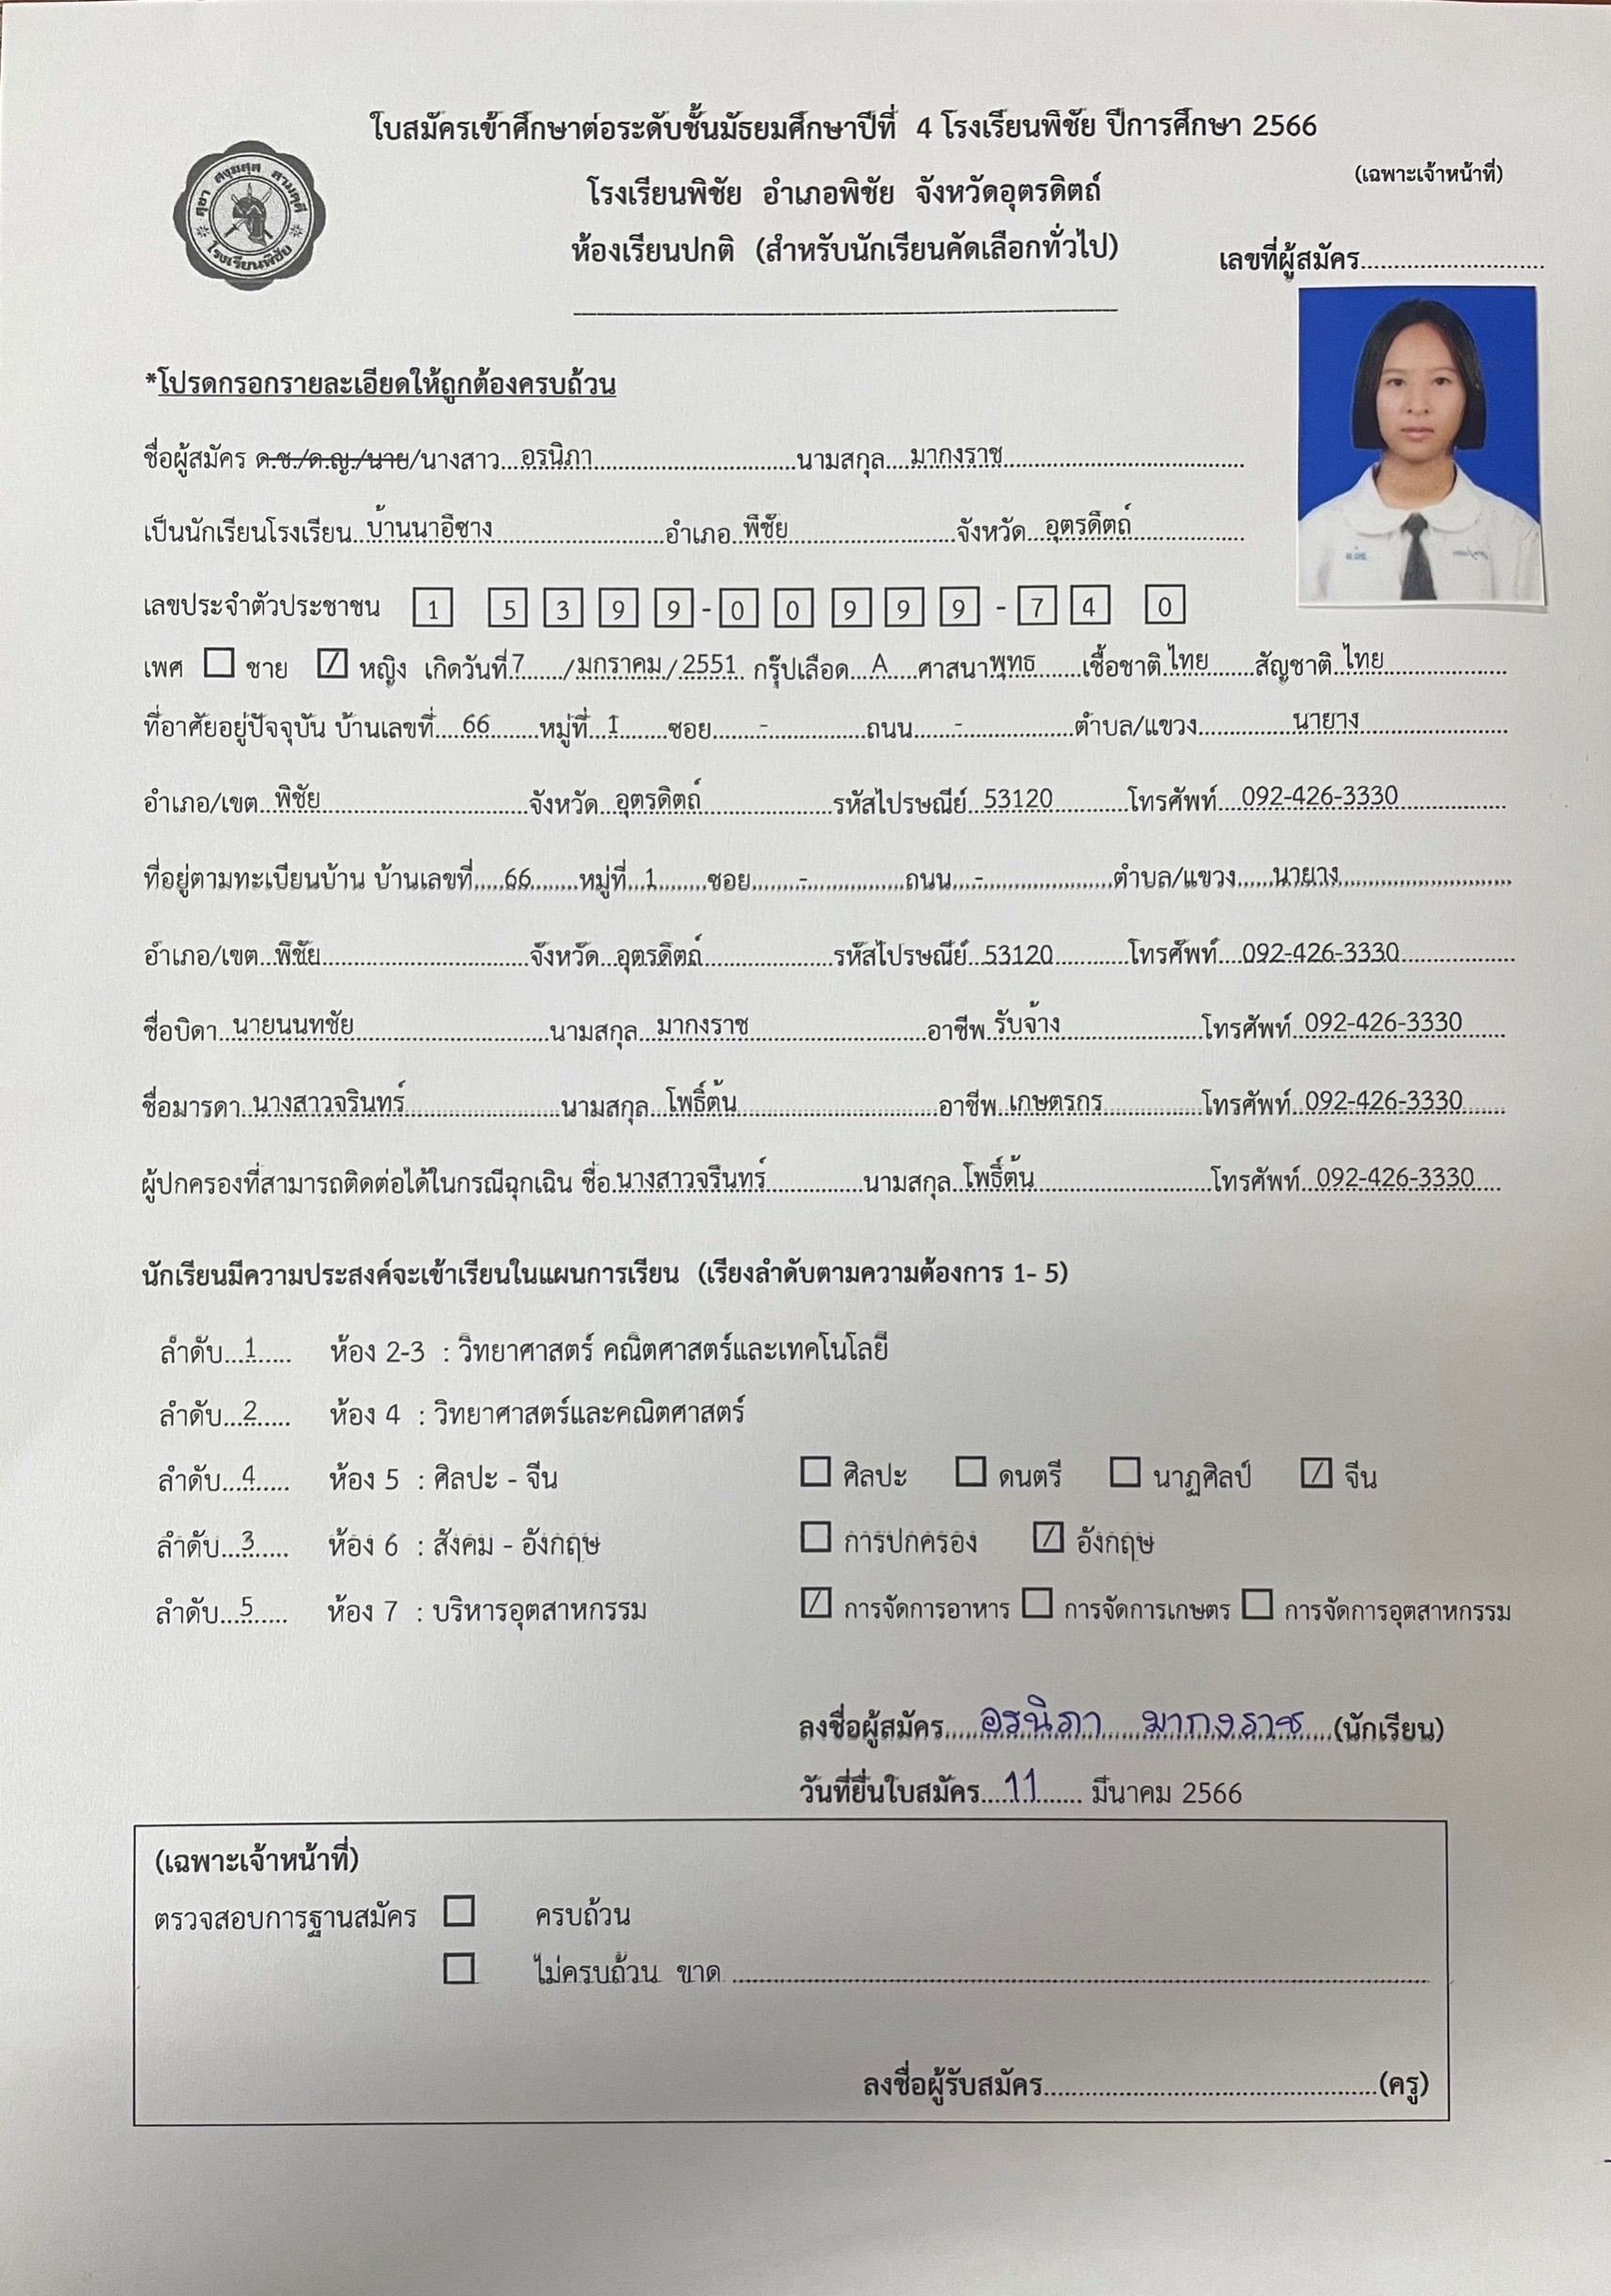 ใบสมัครเข้าศึกษาต่อระดับชั้นมัธยมศึกษาปีที่ 4 โรงเรียนพิชัย ปีการศึกษา 2566
(เฉพาะเจ้าหน้าที่)
โรงเรียนพิชัย อำเภอพิชัย จังหวัดอุตรดิตถ์
ห้องเรียนปกติ (สำหรับนักเรียนคัดเลือกทั่วไป)
เลขที่ผู้สมัคร............................
โรงเรียนพิชัย
*โปรดกรอกรายละเอียดให้ถูกต้องครบถ้วน
ชื่อผู้สมัคร ด.ช./ด.ญ./นาย/นางสาว...อรนิภา...นามสกุล...มากงราช...
เป็นนักเรียนโรงเรียน...บ้านนาอิซาง...อำเภอ...พิชัย...จังหวัด...อุตรดิตถ์...
เลขประจำตัวประชาชน 1 5 3 9 9 - 0 0 9 9 9 - 7 4 0
เพศ ☐ ชาย ☑ หญิง เกิดวันที่ 7 /มกราคม/ 2551 กรุ๊ปเลือด...A...ศาสนา พุทธ เชื้อชาติ ไทย สัญชาติ ไทย
ที่อาศัยอยู่ปัจจุบัน บ้านเลขที่...66...หมู่ที่...1...ซอย...-...ถนน...-...ตำบล/แขวง...นายาง...
อำเภอ/เขต...พิชัย...จังหวัด...อุตรดิตถ์...รหัสไปรษณีย์...53120...โทรศัพท์...092-426-3330
ที่อยู่ตามทะเบียนบ้าน บ้านเลขที่...66...หมู่ที่...1...ซอย...-...ถนน...-...ตำบล/แขวง...นายาง...
อำเภอ/เขต...พิชัย...จังหวัด...อุตรดิตถ์...รหัสไปรษณีย์...53120...โทรศัพท์...092-426-3330
ชื่อบิดา...นายนนทชัย...นามสกุล...มากงราช...อาชีพ...รับจ้าง...โทรศัพท์...092-426-3330
ชื่อมารดา...นางสาวจรินทร์...นามสกุล...โพธิ์ต้น...อาชีพ...เกษตรกร...โทรศัพท์...092-426-3330
ผู้ปกครองที่สามารถติดต่อได้ในกรณีฉุกเฉิน ชื่อ...นางสาวจรินทร์...นามสกุล...โพธิ์ต้น...โทรศัพท์...092-426-3330
นักเรียนมีความประสงค์จะเข้าเรียนในแผนการเรียน (เรียงลำดับตามความต้องการ 1- 5)
ลำดับ...1... ห้อง 2-3 : วิทยาศาสตร์ คณิตศาสตร์และเทคโนโลยี
ลำดับ...2... ห้อง 4 : วิทยาศาสตร์และคณิตศาสตร์
ลำดับ...4... ห้อง 5 : ศิลปะ - จีน ☐ ศิลปะ ☐ ดนตรี ☐ นาฏศิลป์ ☑ จีน
ลำดับ...3... ห้อง 6 : สังคม - อังกฤษ ☐ การปกครอง ☑ อังกฤษ
ลำดับ...5... ห้อง 7 : บริหารอุตสาหกรรม ☑ การจัดการอาหาร ☐ การจัดการเกษตร ☐ การจัดการอุตสาหกรรม
ลงชื่อผู้สมัคร...อรนิภา มากงราช...(นักเรียน)
วันที่ยื่นใบสมัคร...11... มีนาคม 2566
(เฉพาะเจ้าหน้าที่)
ตรวจสอบการฐานสมัคร ☐ ครบถ้วน
☐ ไม่ครบถ้วน ขาด ............................
ลงชื่อผู้รับสมัคร............................(ครู)